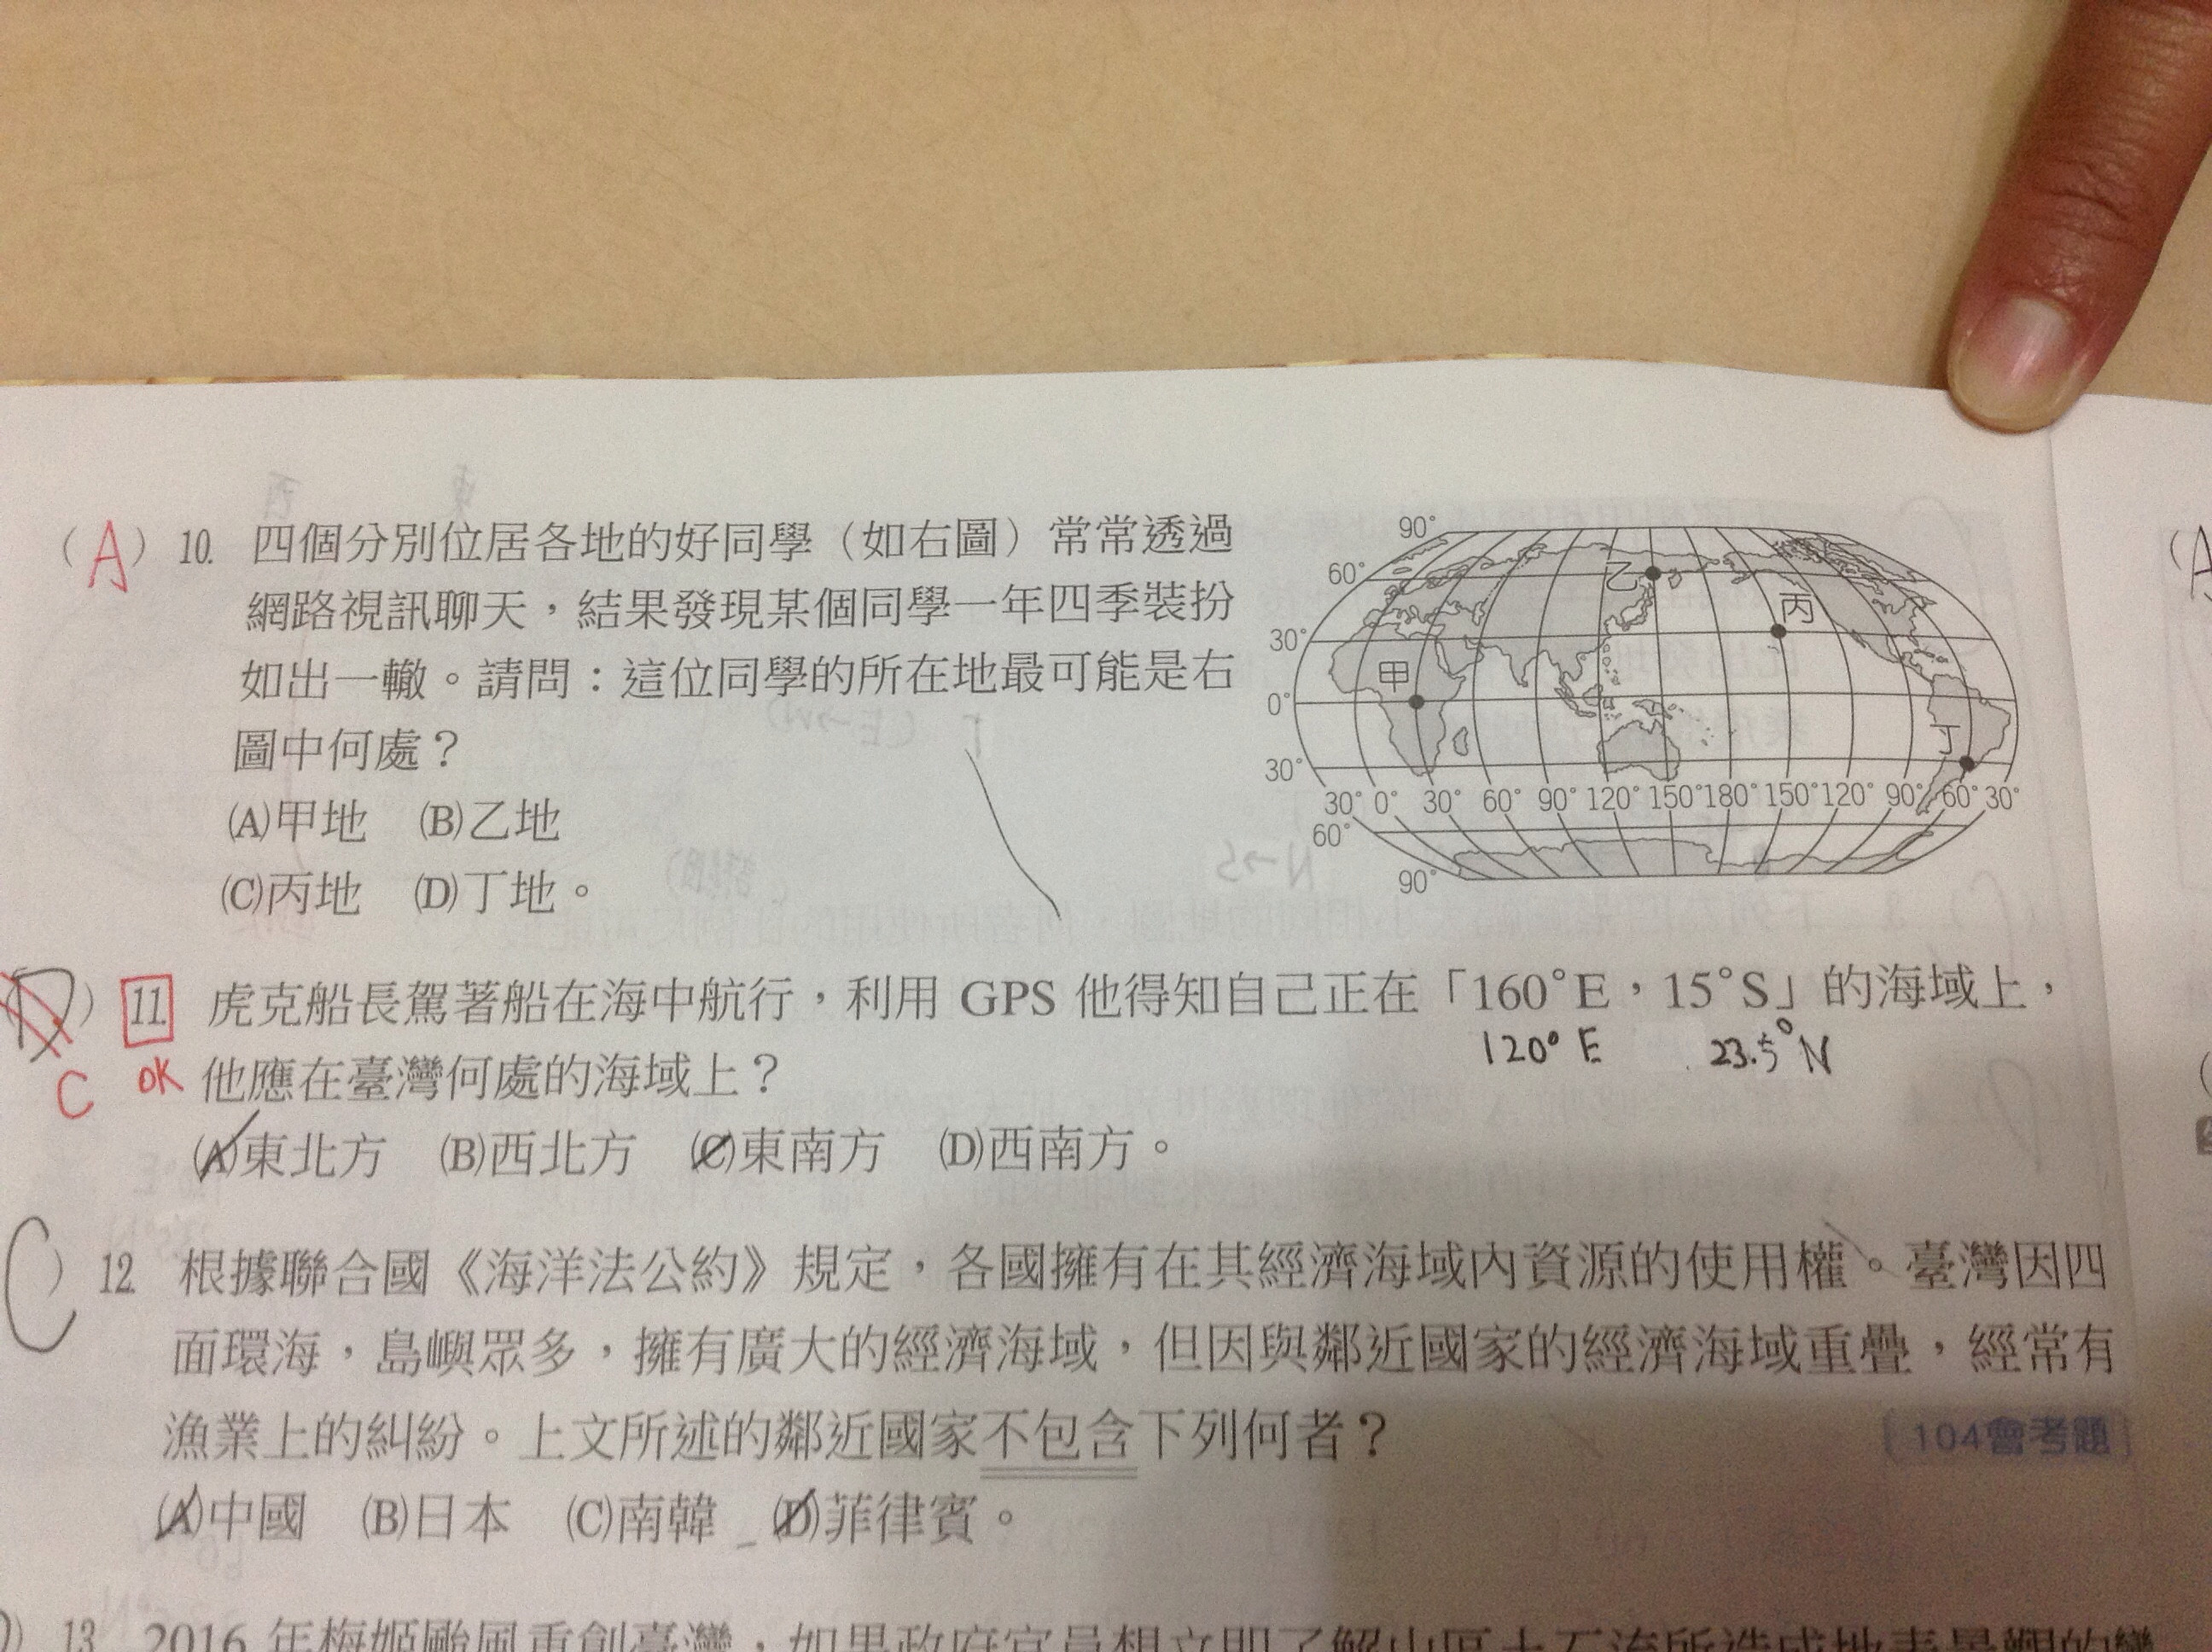 (A) 10. 四個分別位居各地的好同學（如右圖）常常透過
網路視訊聊天，結果發現某個同學一年四季裝扮
如出一轍。請問：這位同學的所在地最可能是右
圖中何處？
(A)甲地 (B)乙地
(C)丙地 (D)丁地。
90°
60°
30°
0°
30°
30° 0° 30° 60° 90° 120° 150° 180° 150° 120° 90° 60° 30°
60°
90°
甲
乙
丙
丁
(D) 11. 虎克船長駕著船在海中航行，利用 GPS 他得知自己正在「160°E，15°S」的海域上，
120° E 23.5° N
C OK 他應在臺灣何處的海域上？
(A)東北方 (B)西北方 (C)東南方 (D)西南方。
(C) 12. 根據聯合國《海洋法公約》規定，各國擁有在其經濟海域內資源的使用權。臺灣因四
面環海，島嶼眾多，擁有廣大的經濟海域，但因與鄰近國家的經濟海域重疊，經常有
漁業上的糾紛。上文所述的鄰近國家不包含下列何者？ 〔104會考題〕
(A)中國 (B)日本 (C)南韓 (D)菲律賓。
13. 2016 年梅姬颱風重創臺灣，如果政府官員想立即了解山區土石流所造成地表景觀的變